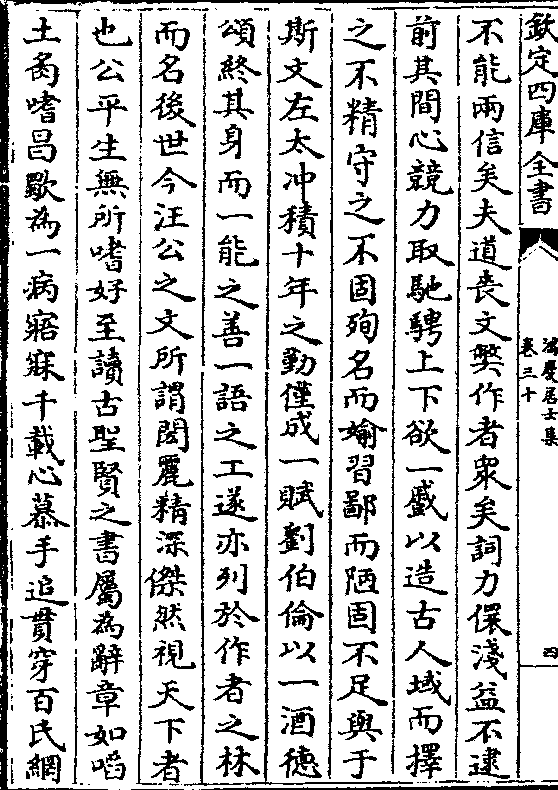 欽定四庫全書
鴻慶居士集
卷三十
四
不能兩信矣夫道喪文弊作者衆矣詞力儇淺益不逮
前其間心競力取馳騁上下欲一蹙以造古人域而擇
之不精守之不固殉名而媮習鄙而陋固不足與于
斯文左太冲積十年之勤僅成一賦劉伯倫以一酒德
頌終其身而一能之善一語之工遂亦列於作者之林
而名後世今汪公之文所謂閎麗精深傑然視天下者
也公平生無所嗜好至讀古聖賢之書屬為辭章如啗
土炙嗜昌歜為一病寤寐千載心慕手追貫穿百氏網